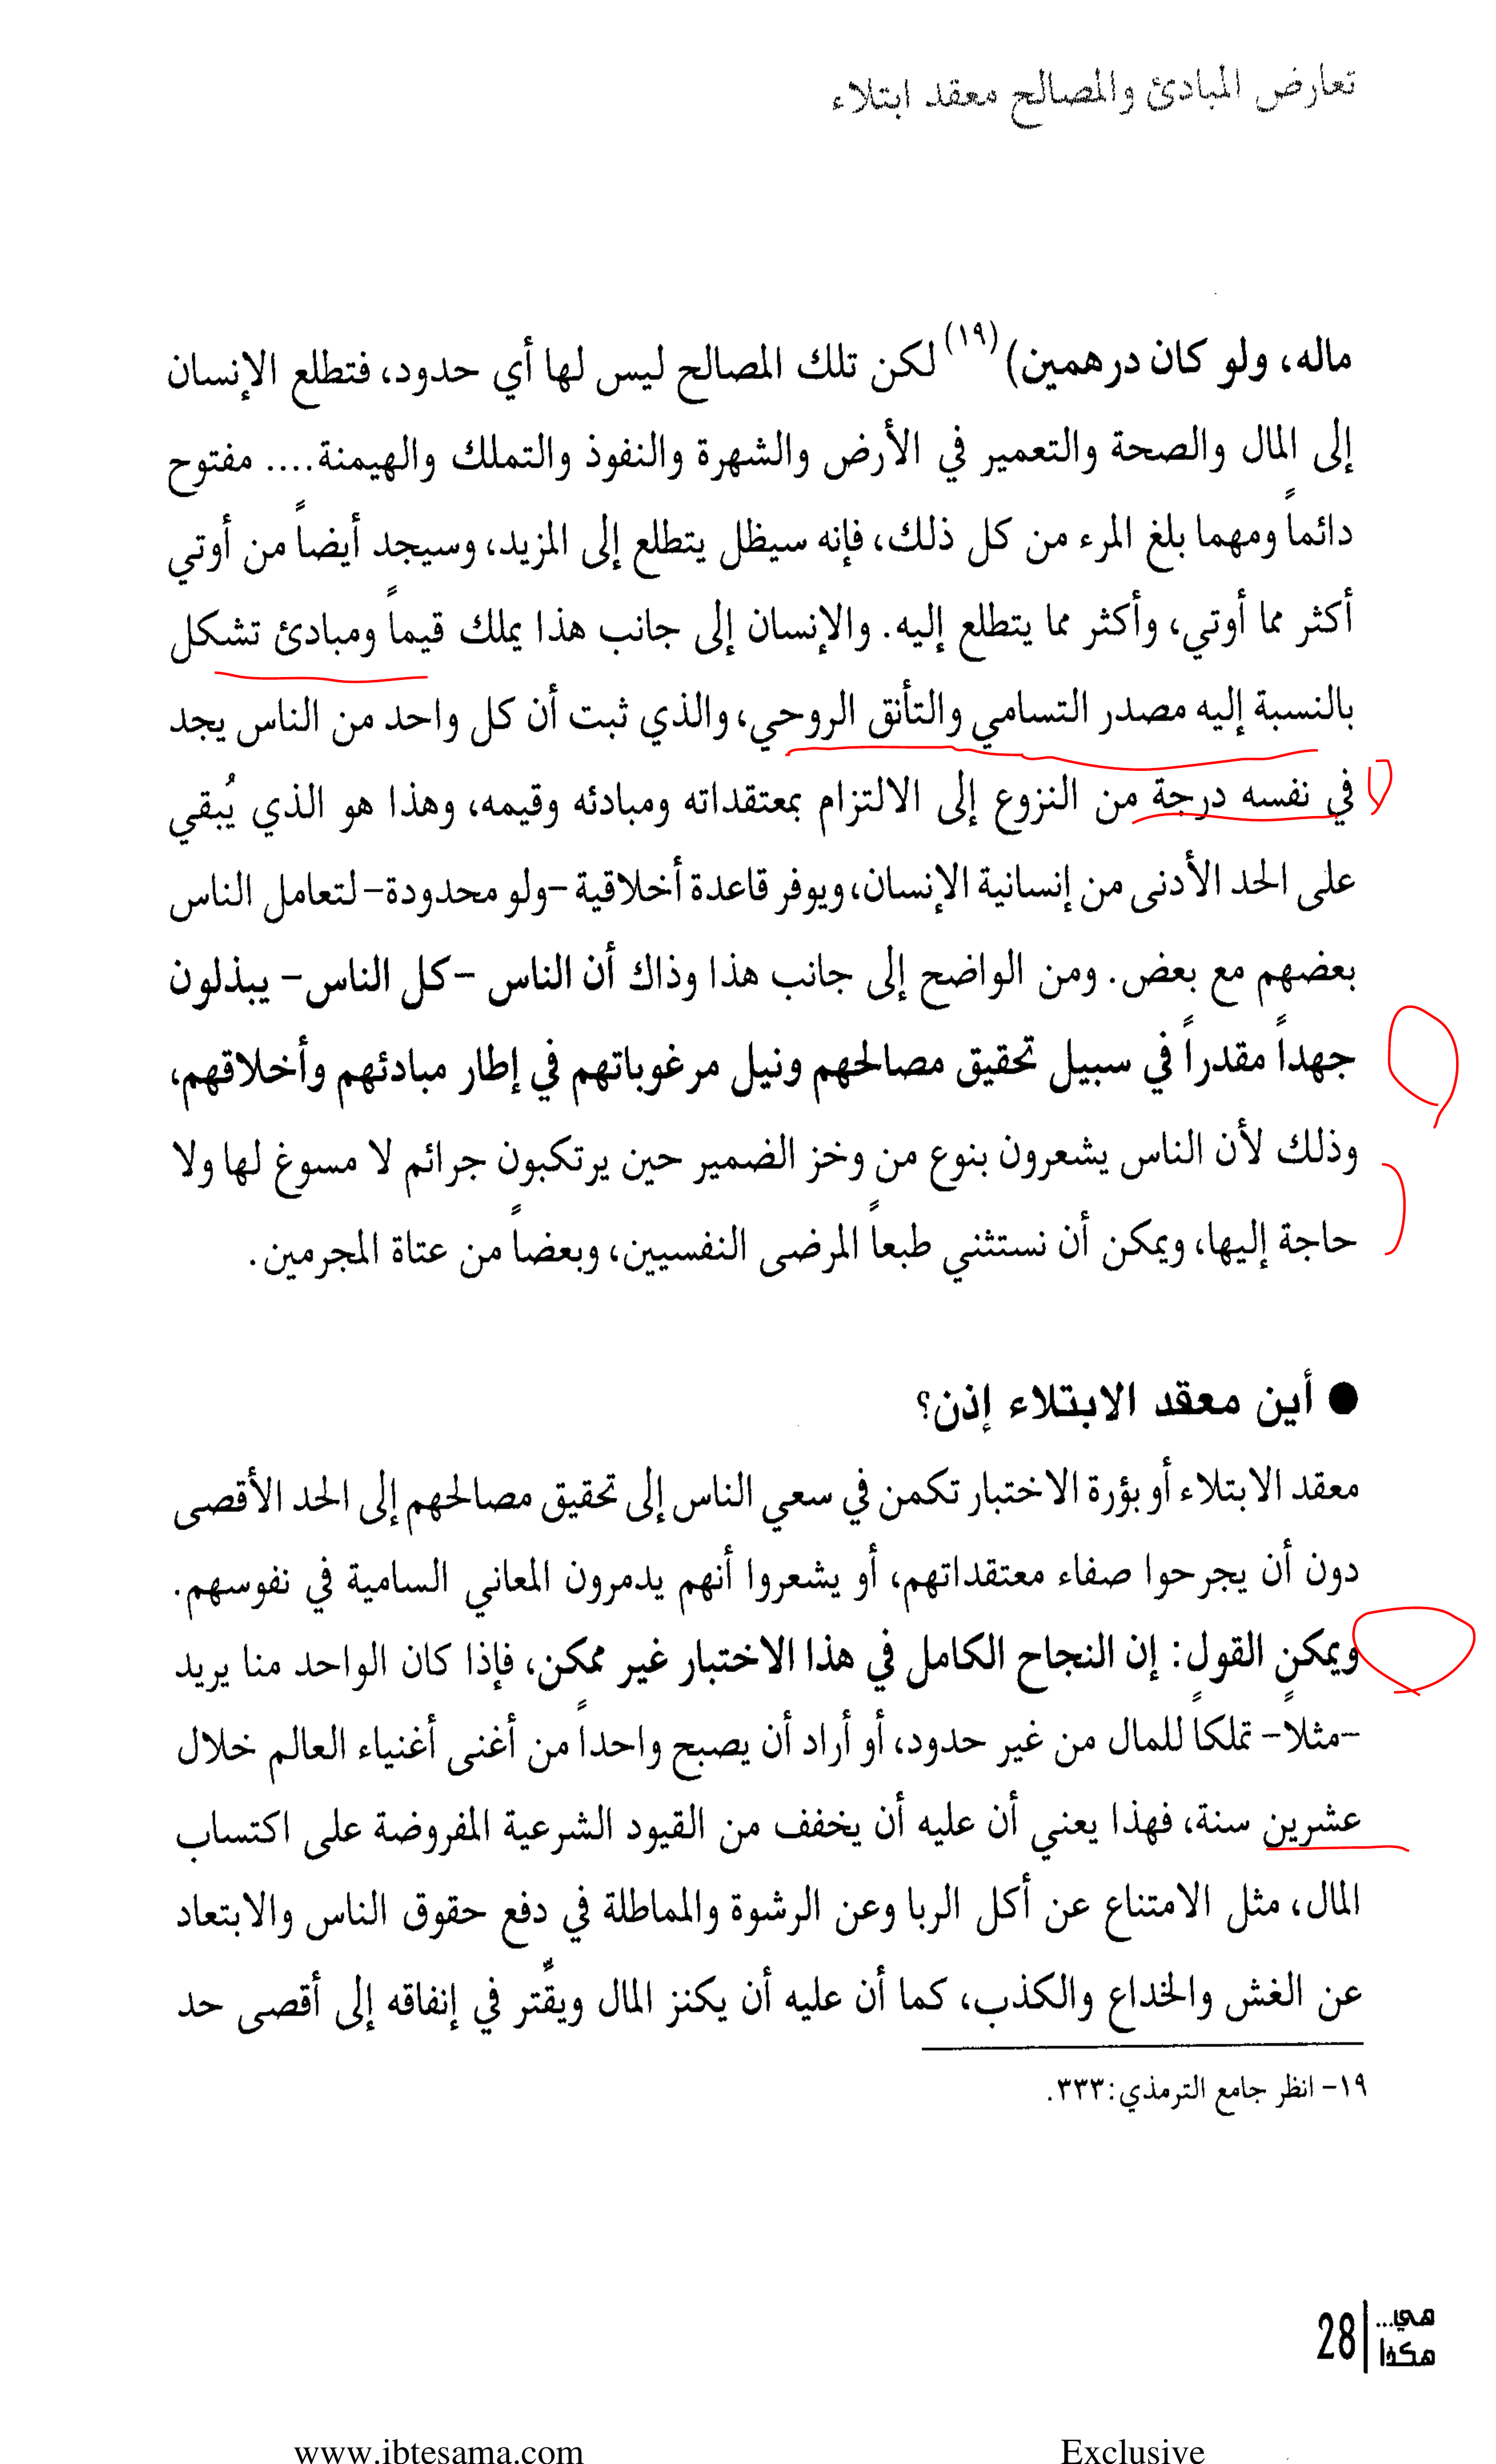 تعارض المبادئ والمصالح معقد ابتلاء
ماله، ولو كان درهمين)(١٩) لكن تلك المصالح ليس لها أي حدود، فتطلع الإنسان
إلى المال والصحة والتعمير في الأرض والشهرة والنفوذ والتملك والهيمنة.... مفتوح
دائماً ومهما بلغ المرء من كل ذلك، فإنه سيظل يتطلع إلى المزيد، وسيجد أيضاً من أوتي
أكثر مما أوتي، وأكثر مما يتطلع إليه. والإنسان إلى جانب هذا يملك قيماً ومبادئ تشكل
بالنسبة إليه مصدر التسامي والتأنق الروحي، والذي ثبت أن كل واحد من الناس يجد
في نفسه درجة من النزوع إلى الالتزام بمعتقداته ومبادئه وقيمه، وهذا هو الذي يُبقي
على الحد الأدنى من إنسانية الإنسان، ويوفر قاعدة أخلاقية -ولو محدودة- لتعامل الناس
بعضهم مع بعض. ومن الواضح إلى جانب هذا وذاك أن الناس -كل الناس- يبذلون
جهداً مقدراً في سبيل تحقيق مصالحهم ونيل مرغوباتهم في إطار مبادئهم وأخلاقهم،
وذلك لأن الناس يشعرون بنوع من وخز الضمير حين يرتكبون جرائم لا مسوغ لها ولا
حاجة إليها، ويمكن أن نستثني طبعاً المرضى النفسيين، وبعضاً من عتاة المجرمين.
● أين معقد الابتلاء إذن؟
معقد الابتلاء أو بؤرة الاختبار تكمن في سعي الناس إلى تحقيق مصالحهم إلى الحد الأقصى
دون أن يجرحوا صفاء معتقداتهم، أو يشعروا أنهم يدمرون المعاني السامية في نفوسهم.
ويمكن القول: إن النجاح الكامل في هذا الاختبار غير ممكن، فإذا كان الواحد منا يريد
-مثلاً- تملكاً للمال من غير حدود، أو أراد أن يصبح واحداً من أغنى أغنياء العالم خلال
عشرين سنة، فهذا يعني أن عليه أن يخفف من القيود الشرعية المفروضة على اكتساب
المال، مثل الامتناع عن أكل الربا وعن الرشوة والمماطلة في دفع حقوق الناس والابتعاد
عن الغش والخداع والكذب، كما أن عليه أن يكنز المال ويقتِّر في إنفاقه إلى أقصى حد
١٩- انظر جامع الترمذي: ٣٣٣.
هي...
هكذا
28
www.ibtesama.com Exclusive